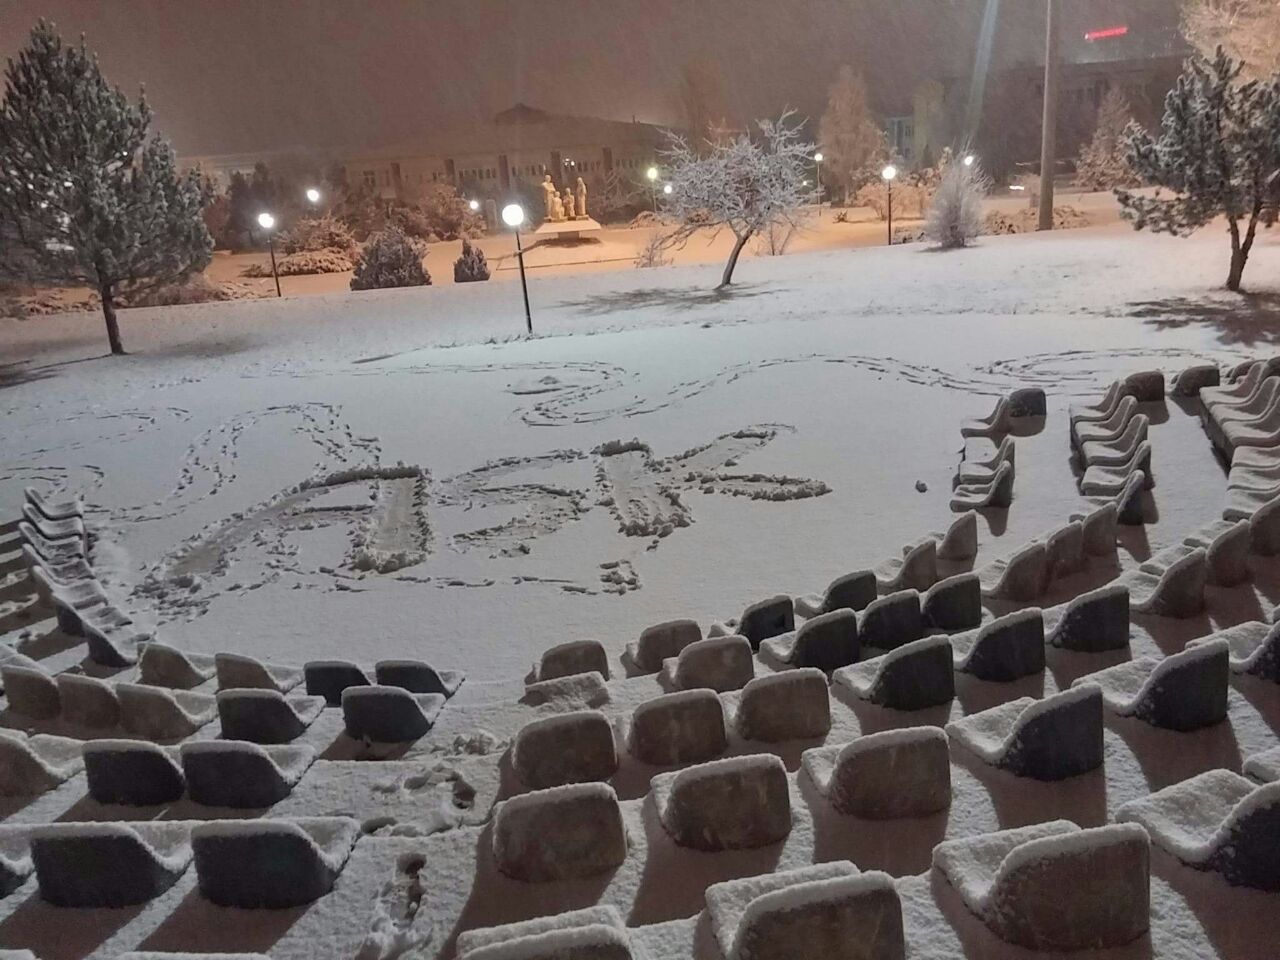 AŞK